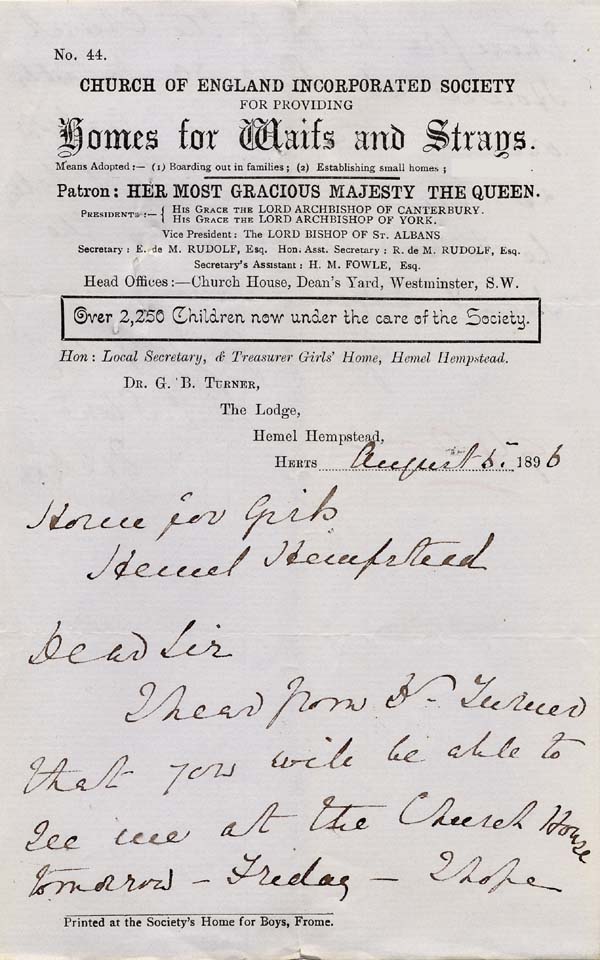 No. 44.
CHURCH OF ENGLAND INCORPORATED SOCIETY
FOR PROVIDING
Homes for Waifs and Strays.
Means Adopted :— (1) Boarding out in families ; (2) Establishing small homes ;
Patron: HER MOST GRACIOUS MAJESTY THE QUEEN.
PRESIDENTS :— { HIS GRACE THE LORD ARCHBISHOP OF CANTERBURY.
HIS GRACE THE LORD ARCHBISHOP OF YORK.
Vice President: The LORD BISHOP OF ST. ALBANS
Secretary : E. de M. RUDOLF, Esq. Hon. Asst. Secretary : R. de M. RUDOLF, Esq.
Secretary's Assistant : H. M. FOWLE, Esq.
Head Offices:—Church House, Dean's Yard, Westminster, S.W.
Over 2,250 Children now under the care of the Society.
Hon : Local Secretary, & Treasurer Girls' Home, Hemel Hempstead.
DR. G. B. TURNER,
The Lodge,
Hemel Hempstead,
HERTS August 5. 1896
Home for Girls
Hemel Hempstead
Dear Sir
I hear from Dr. Turner
that you will be able to
see me at the Church House
tomorrow – Friday – I hope
Printed at the Society's Home for Boys, Frome.